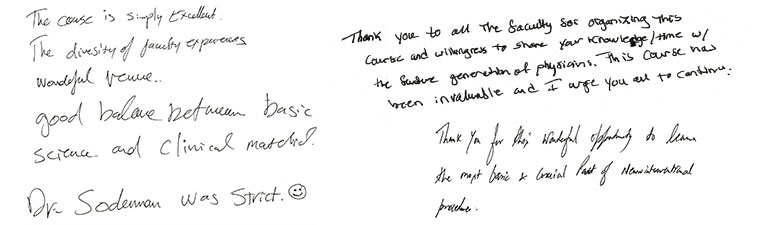 The course is simply Excellent.
The diversity of faculty experiences
wonderful venue..
good balance between basic
science and clinical material.
Dr. Soderman was strict. ☺
Thank you to all the faculty for organizing this
course and willingness to share your knowledge/time w/
the future generation of physicians. This course has
been invaluable and I urge you all to continue.
Thank You for this wonderful opportunity to learn
the most basic & crucial Part of Neurointerventional
procedure.